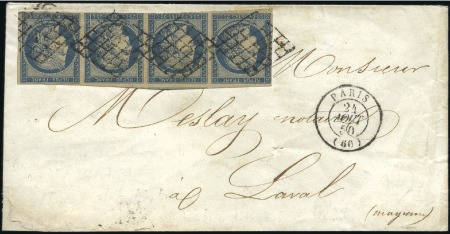 Monsieur
PARIS
21
AOUT
50
(60)
Meslay notaire
à Laval
(mayenne)